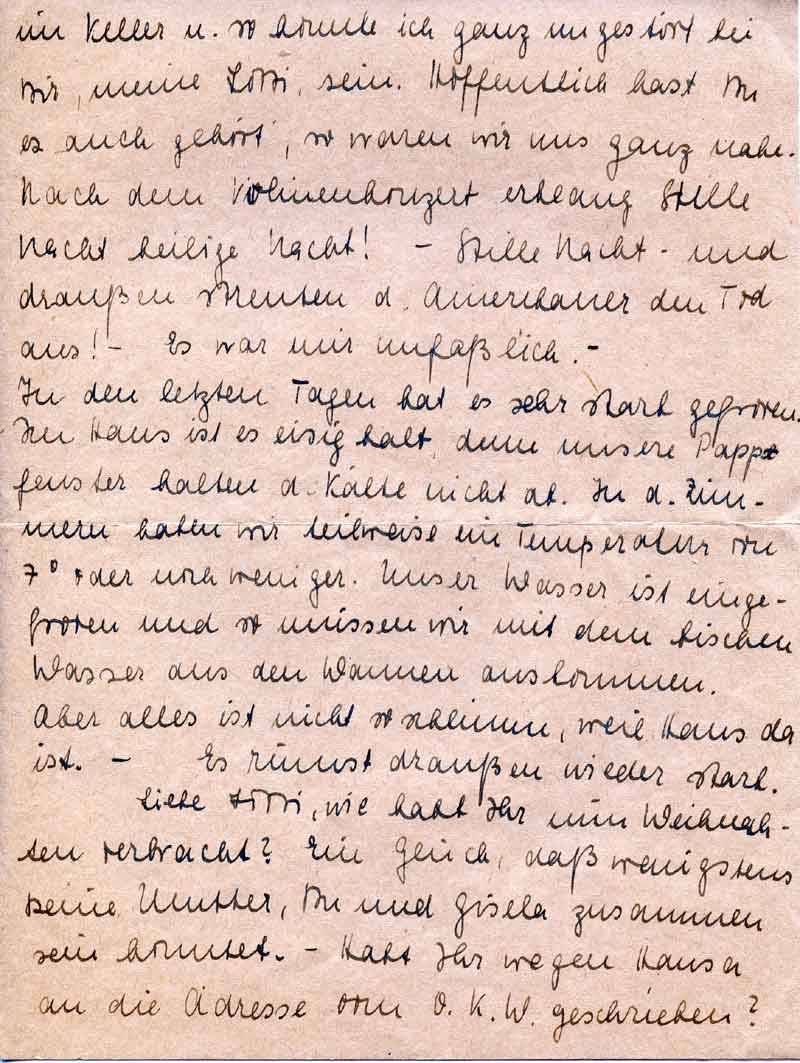 im Keller u. so konnte ich ganz ungestört bei
Dir, meine Lotti, sein. Hoffentlich hast Du
es auch gehört, so waren wir uns ganz nahe.
Nach dem Violinenkonzert erklang Stille
Nacht heilige Nacht! - Stille Nacht - und
draußen streuten d. Amerikaner den Tod
aus! - Es war mir unfaßlich. -
In den letzten Tagen hat es sehr stark gefroren.
Im Haus ist es eisig kalt, denn unsere Papp-
fenster halten d. Kälte nicht ab. In d. Zim-
mern haben wir teilweise ein Temperatur von
7° oder noch weniger. Unser Wasser ist einge-
froren und so müssen wir mit dem bischen
Wasser aus den Wannen auskommen.
Aber alles ist nicht so schlimm, weil Hans da
ist. - Es rumst draußen wieder stark.
Liebe Lotti, wie habt Ihr nun Weihnach-
ten verbracht? Ein Glück, daß wenigstens
Deine Mutter, Du und Gisela zusammen
sein konntet. - Habt Ihr wegen Hansa
an die Adresse vom O. K. W. geschrieben?